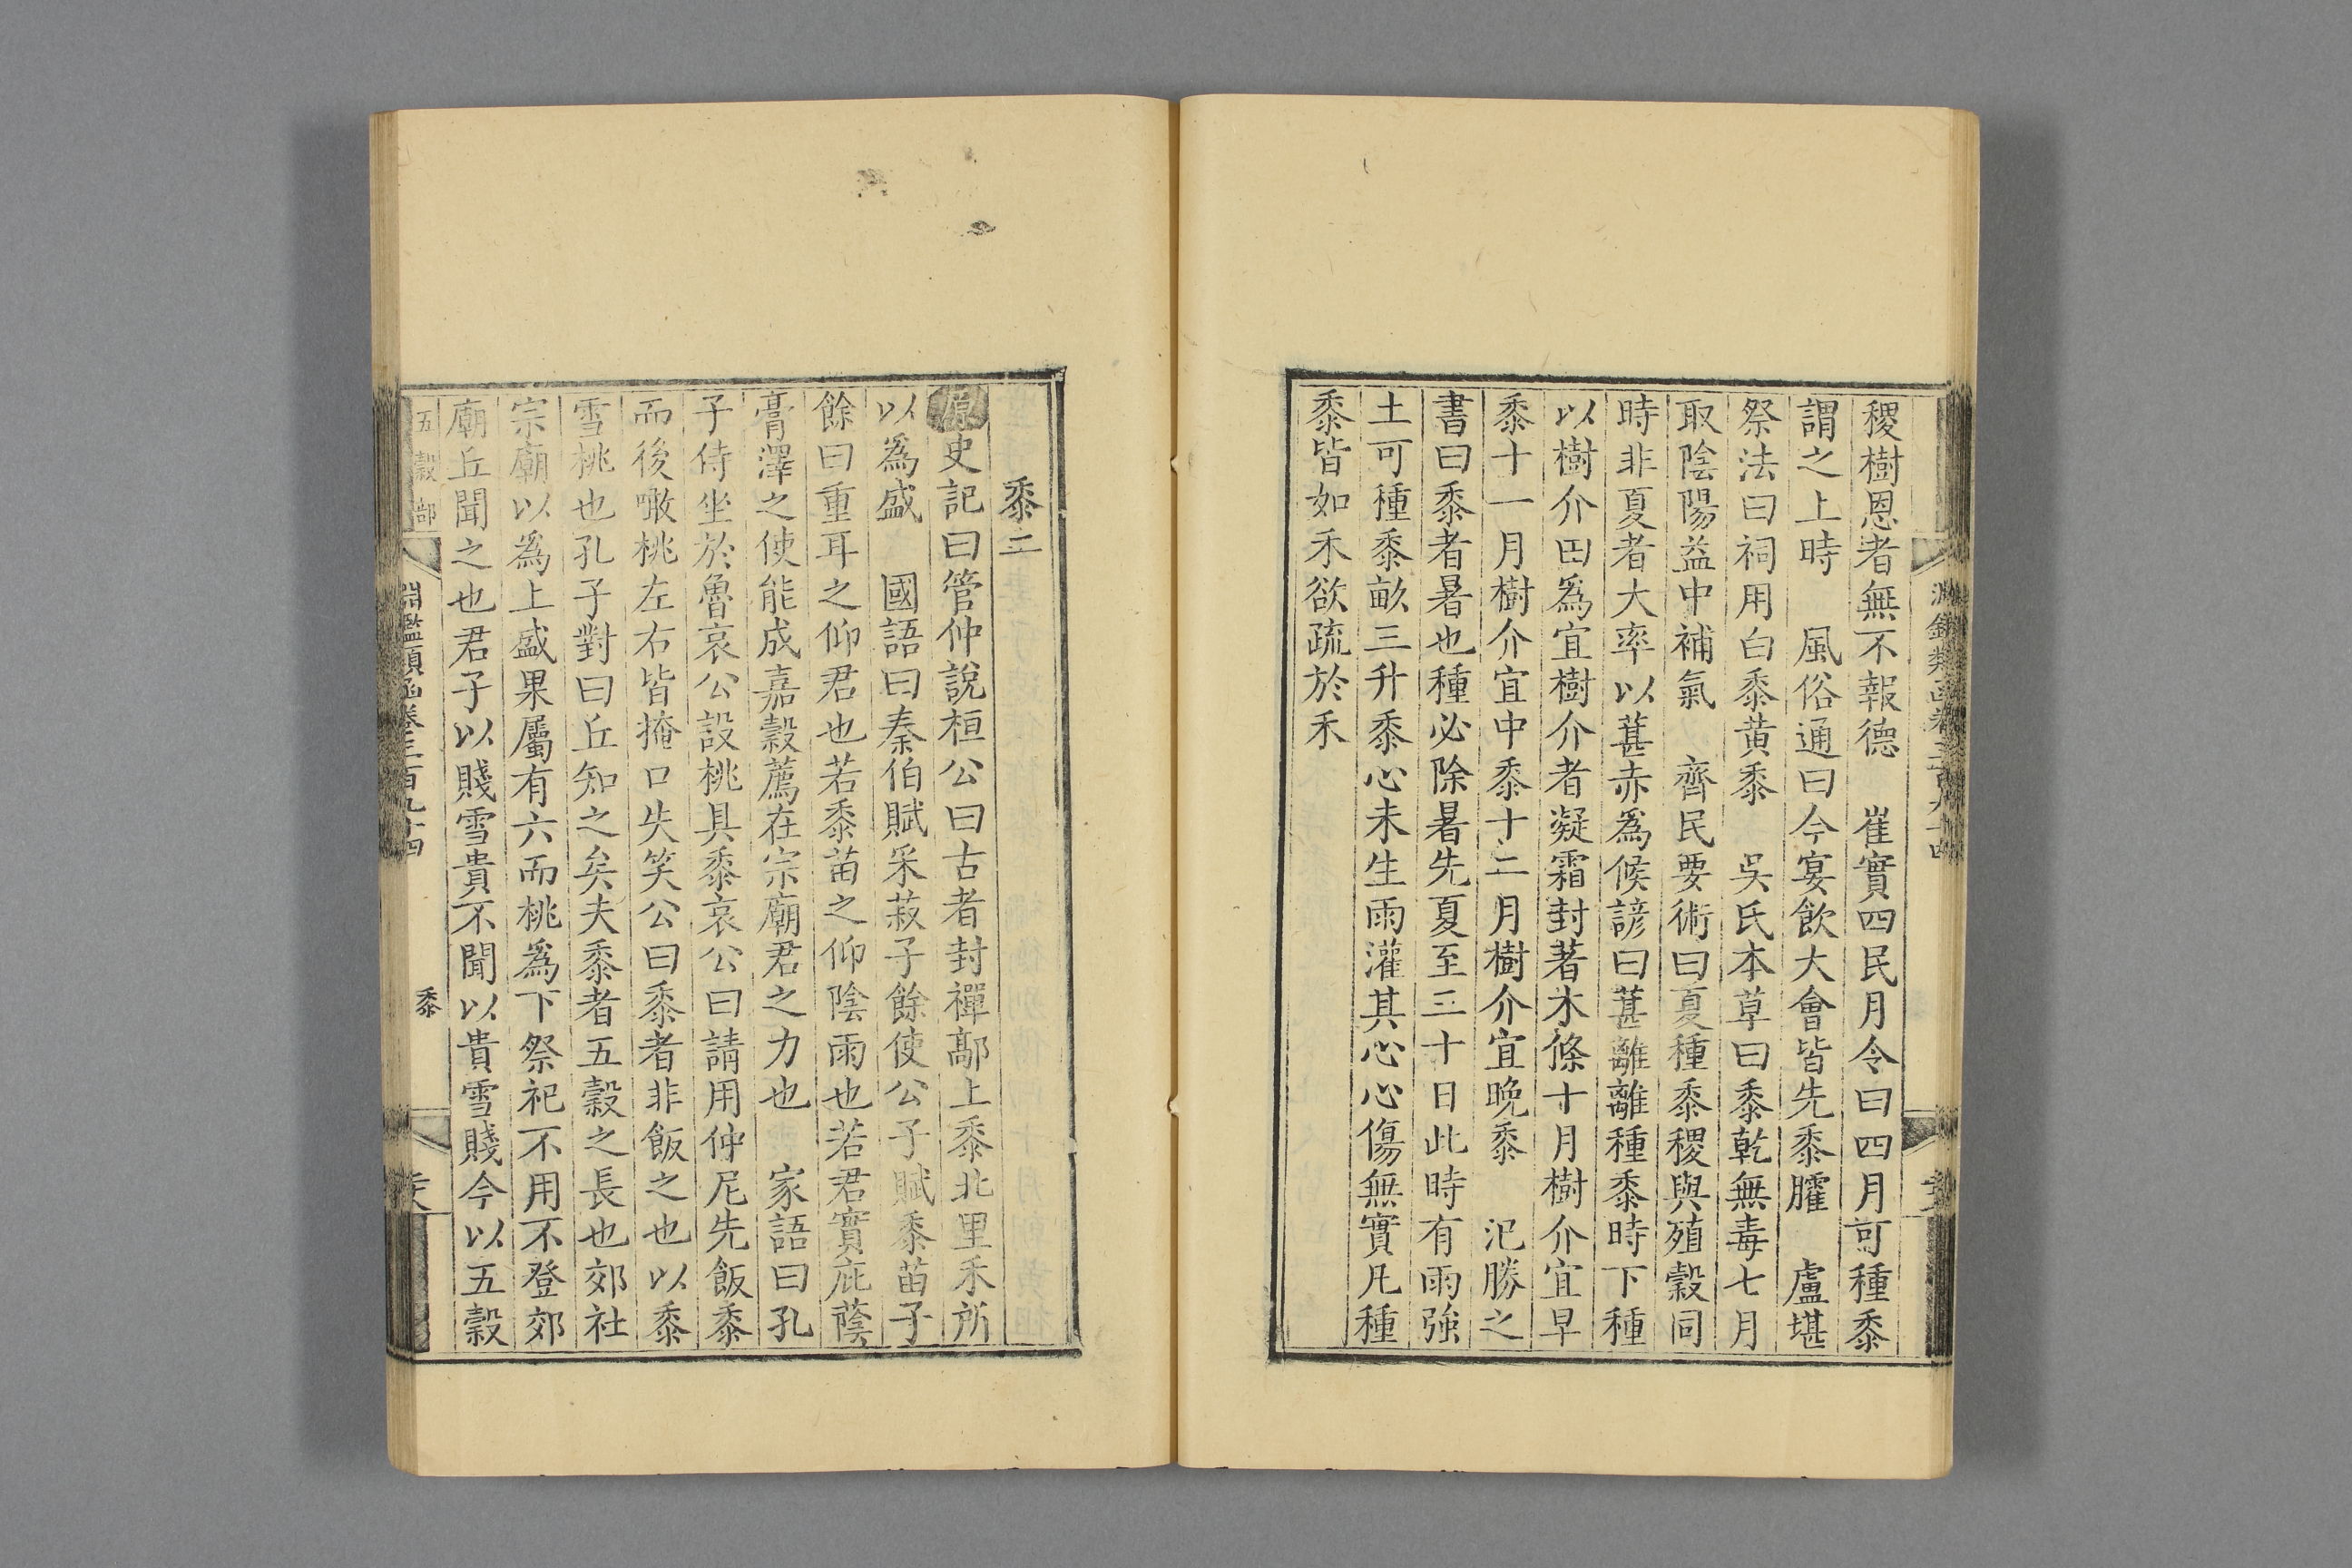 稷樹恩者無不報德　崔寔四民月令曰四月可種黍
謂之上時　風俗通曰今宴飲大會皆先黍臛　盧堪
祭法曰祠用白黍黄黍　吳氏本草曰黍乾無毒七月
取陰陽益中補氣　齊民要術曰夏種黍稷與殖穀同
時非夏者大率以葚赤爲候諺曰葚離離種黍時下種
以樹介田爲宜樹介者凝霜封著木條十月樹介宜早
黍十一月樹介宜中黍十二月樹介宜晚黍　氾勝之
書曰黍者暑也種必除暑先夏至二十日此時有雨強
土可種黍畝三升黍心未生雨灌其心心傷無實凡種
黍皆如禾欲疏於禾
黍二
原史記曰管仲說桓公曰古者封禪鄗上黍北里禾所
以爲盛　國語曰秦伯賦采菽子餘使公子賦黍苗子
餘曰重耳之仰君也若黍苗之仰陰雨也若君實庇蔭
膏澤之使能成嘉穀薦在宗廟君之力也　家語曰孔
子侍坐於魯哀公設桃具黍哀公曰請用仲尼先飯黍
而後噉桃左右皆掩口失笑公曰黍者非飯之也以黍
雪桃也孔子對曰丘知之矣夫黍者五穀之長也郊社
宗廟以爲上盛果屬有六而桃爲下祭祀不用不登郊
廟丘聞之也君子以賤雪貴不聞以貴雪賤今以五穀
五穀部
淵鑑類函卷三百九十四
黍